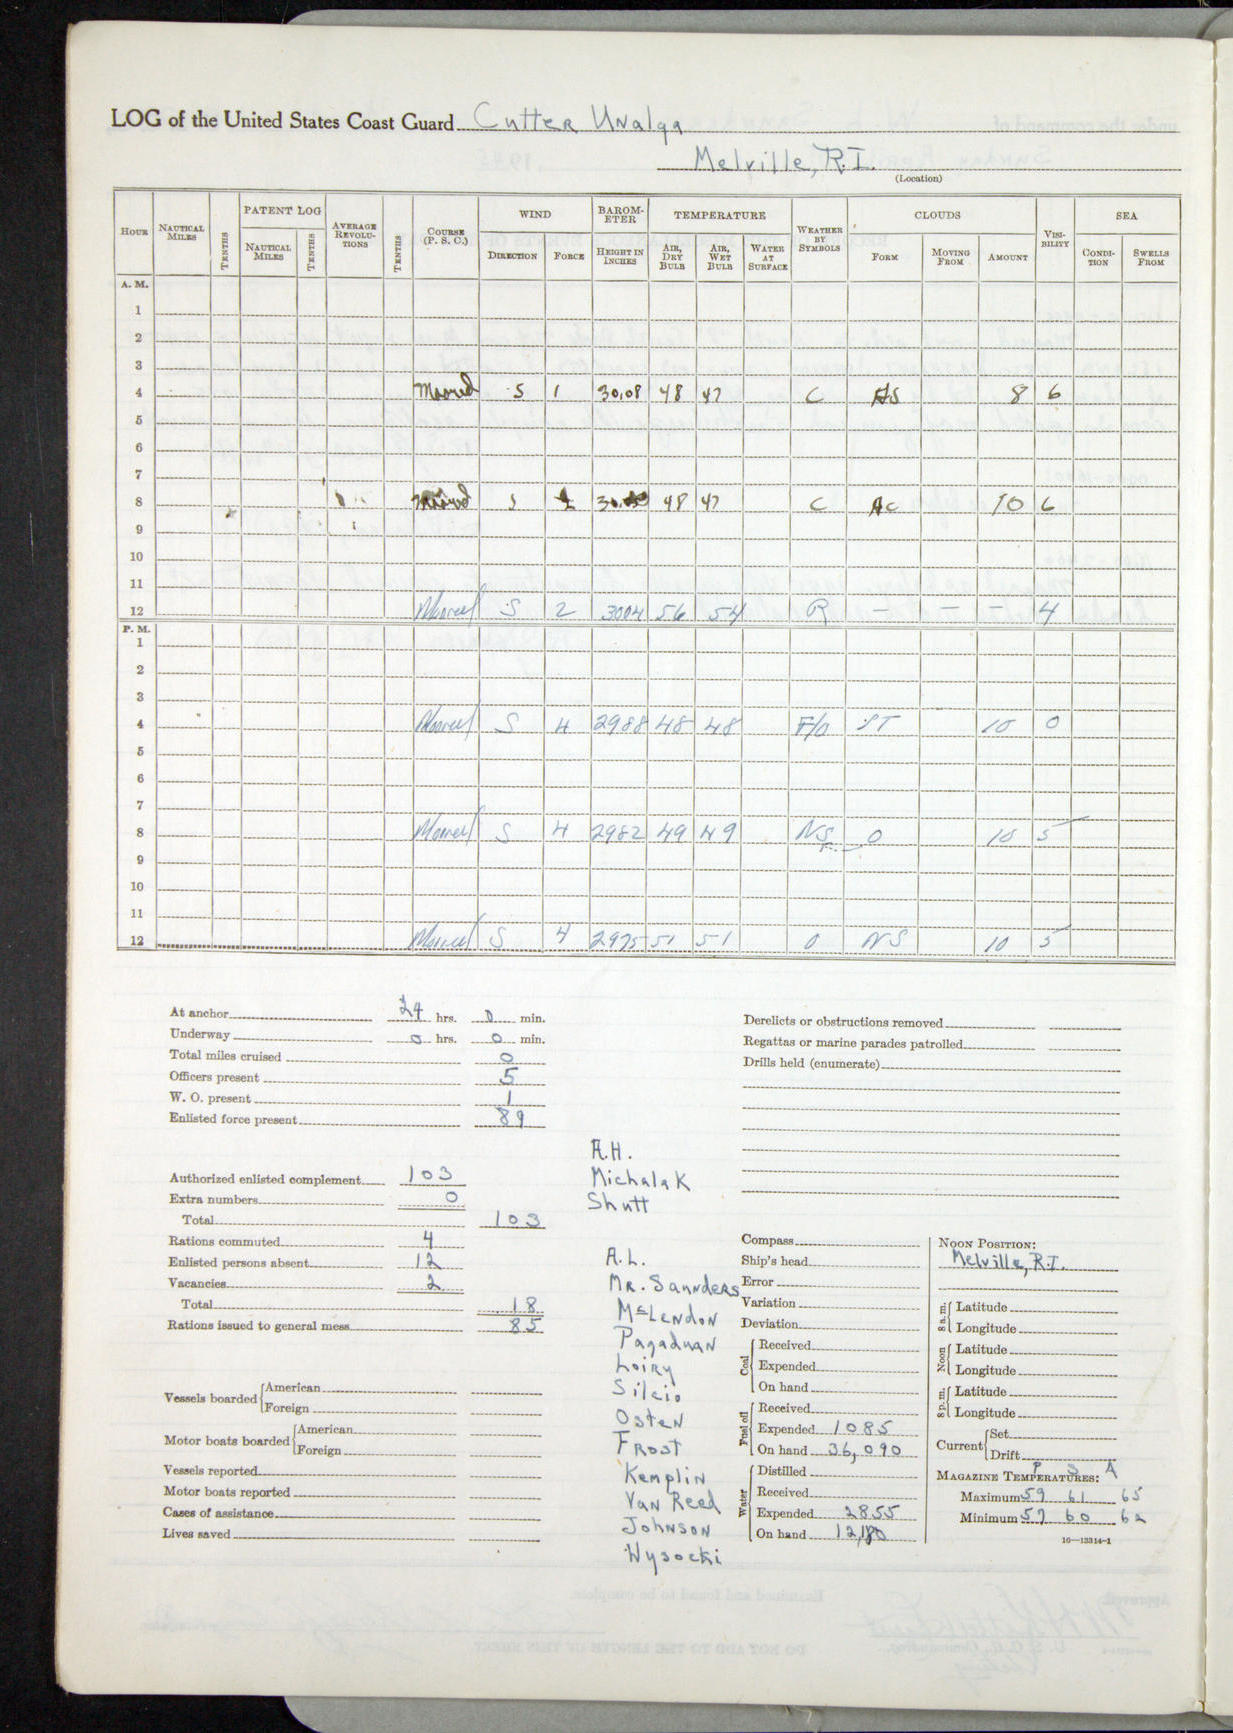 LOG of the United States Coast Guard Cutter Unalga
Melville, R.I.
(Location)
HOUR NAUTICAL MILES TENTHS PATENT LOG NAUTICAL MILES TENTHS AVERAGE REVOLU-TIONS TENTHS COURSE (P. S. C.) WIND DIRECTION FORCE BAROM-ETER HEIGHT IN INCHES TEMPERATURE AIR, DRY BULB AIR, WET BULB WATER AT SURFACE WEATHER BY SYMBOLS CLOUDS FORM MOVING FROM AMOUNT VISI-BILITY SEA CONDI-TION SWELLS FROM
A. M.
1
2
3
4 Moored S 1 30.08 48 47 C AS 8 6
5
6
7
8 Moored S 48 47 C AC 10 6
9
10
11
12 Moored S 2 3004 56 54 R — — — 4
P. M.
1
2
3
4 Moored S 4 2988 48 48 F/O ST 10 0
5
6
7
8 Moored S 4 2982 49 49 NS O 10 5
9
10
11
12 Moored S 4 2975 51 51 O NS 10 5
At anchor 24 hrs. 0 min.
Underway 0 hrs. 0 min.
Total miles cruised 0
Officers present 5
W. O. present 1
Enlisted force present 89
Authorized enlisted complement 103
Extra numbers 0
Total 103
Rations commuted 4
Enlisted persons absent 12
Vacancies 2
Total 18
Rations issued to general mess 85
Vessels boarded American
Foreign
Motor boats boarded American
Foreign
Vessels reported
Motor boats reported
Cases of assistance
Lives saved
A.H.
Michalak
Shutt
A.L.
Mr. Saunders
McLendon
Pagaduan
Loiry
Silcio
Osten
Frost
Kemplin
Van Reed
Johnson
Wysocki
Derelicts or obstructions removed
Regattas or marine parades patrolled
Drills held (enumerate)
Compass
Ship's head
Error
Variation
Deviation
Coal Received
Expended
On hand
Fuel oil Received
Expended 1085
On hand 36,090
Water Distilled
Received
Expended 2855
On hand
NOON POSITION:
Melville, R.I.
8 a.m. Latitude
Longitude
Noon Latitude
Longitude
8 p.m. Latitude
Longitude
Current Set
Drift
P S A
MAGAZINE TEMPERATURES:
Maximum 59 61 65
Minimum 57 60 62
16—13314-1